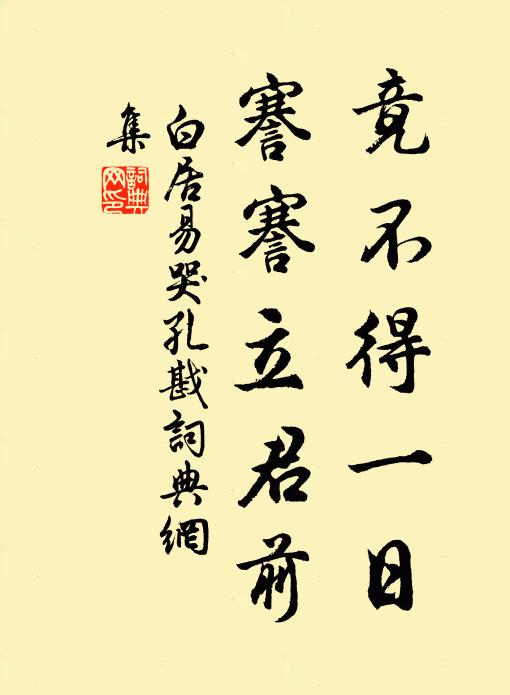 竟不得一日
謇謇立君前
白居易哭孔戡詞典網
集
詞典網印